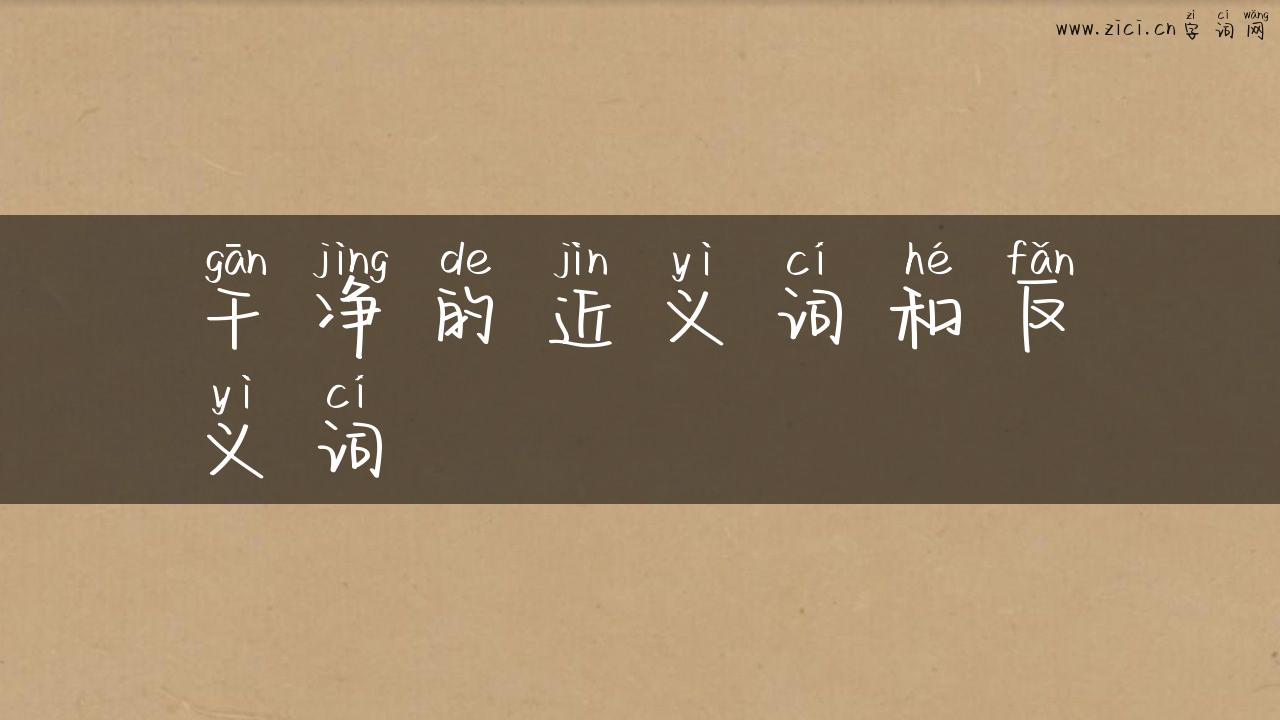 zì cí wǎng
www.zici.cn 字 词 网
gān jìng de jìn yì cí hé fǎn
干 净 的 近 义 词 和 反
yì cí
义 词